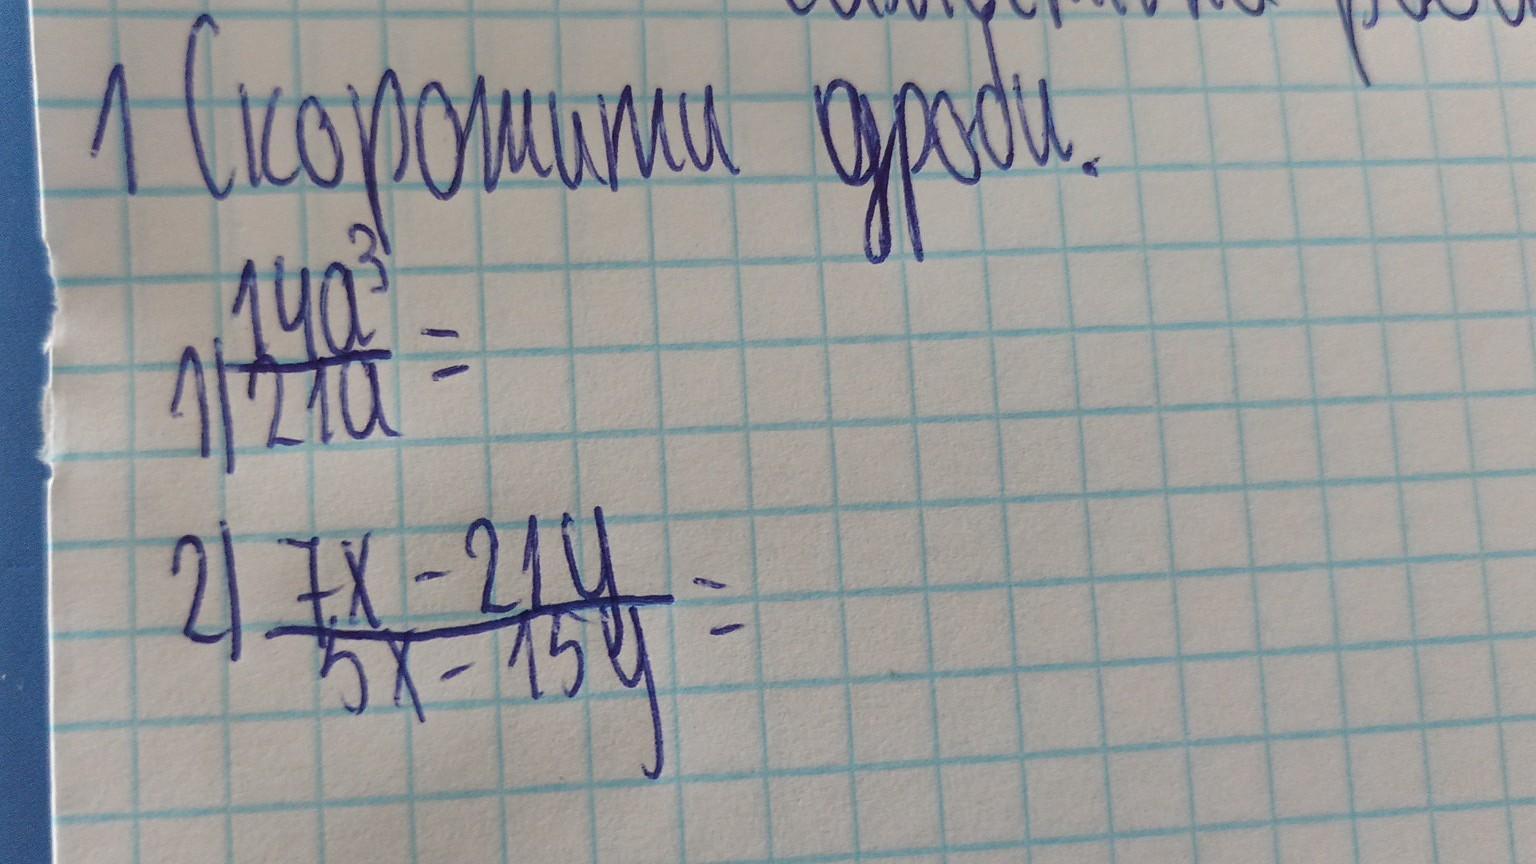 1 Скоротити дроби.
1) 14a³/21a =
2) 7x - 21y/5x - 15y =